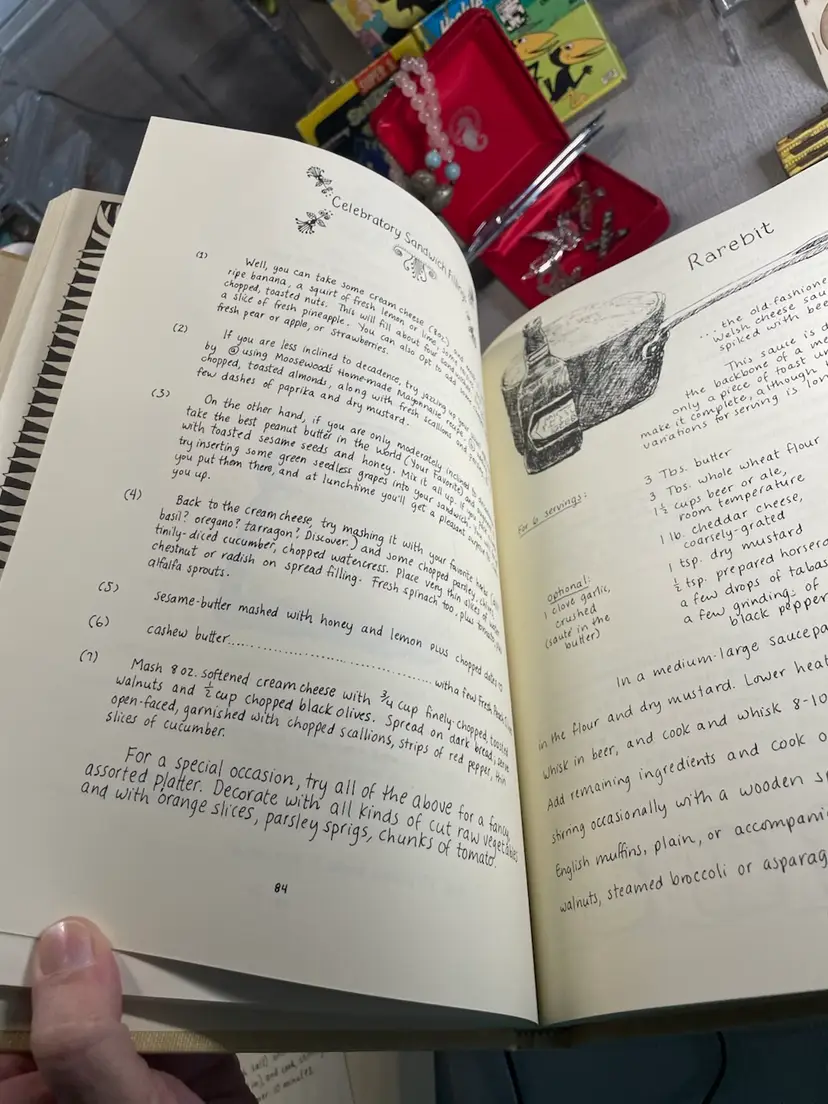 Celebratory Sandwich Fillings
(1) Well, you can take some cream cheese (8oz.) and
ripe banana, a squirt of fresh lemon or lime,
chopped, toasted nuts. This will fill about four
a slice of fresh pineapple. You can also opt to add
fresh pear or apple, or strawberries.
(2) If you are less inclined to decadence, try jazzing up your
by @ using Moosewood's Home-made Mayonnaise
chopped, toasted almonds, along with fresh scallions
few dashes of paprika and dry mustard.
(3) On the other hand, if you are only moderately inclined to
take the best peanut butter in the world (Your Favorite) and
with toasted sesame seeds and honey. Mix it all up.
try inserting some green seedless grapes into your sandwich.
you put them there, and at lunchtime you'll get a pleasant
you up.
(4) Back to the cream cheese, try mashing it with your favorite herbs
basil? oregano? tarragon? Discover.) and some chopped parsley,
tinily-diced cucumber, chopped watercress. Place very thin slices of
chestnut or radish on spread filling. Fresh spinach too, plus
alfalfa sprouts.
(5) sesame-butter mashed with honey and lemon plus chopped dates
(6) cashew butter.................................with a few Fresh
(7) Mash 8 oz. softened cream cheese with ¾ cup finely-chopped toasted
walnuts and ½ cup chopped black olives. Spread on dark bread; serve
open-faced, garnished with chopped scallions, strips of red pepper, thin
slices of cucumber.
For a special occasion, try all of the above for a fancy
assorted platter. Decorate with all kinds of cut raw vegetables
and with orange slices, parsley sprigs, chunks of tomato.
84
Rarebit
...the old-fashione
Welsh cheese sau
spiked with bee
This sauce is d
the backbone of a me
only a piece of toast un
make it complete, although
variations for serving is lon
For 6 servings:
3 Tbs. butter
3 Tbs. whole wheat flour
1½ cups beer or ale,
room temperature
1 lb. cheddar cheese,
coarsely-grated
1 tsp. dry mustard
½ tsp. prepared horsera
a few drops of tabas
a few grindings of
black pepper
optional:
1 clove garlic,
crushed
(sauté in the
butter)
In a medium-large saucepa
in the flour and dry mustard. Lower heat
whisk in beer, and cook and whisk 8-10
Add remaining ingredients and cook o
stirring occasionally with a wooden sp
English muffins, plain, or accompani
walnuts, steamed broccoli or asparag